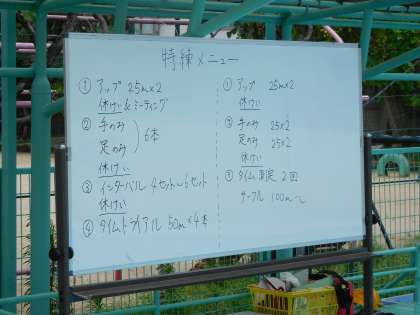 特練メニュー
① アップ 25m×2
休けい & ミーティング
② 手のみ
足のみ
6本
休けい
③ インターバル 4セット～6セット
休けい
④ タイムトライアル 50m×4本
① アップ 25m×2
休けい
② 手のみ 25×2
足のみ 25×2
休けい
③ タイム測定 2回
サークル 100m～